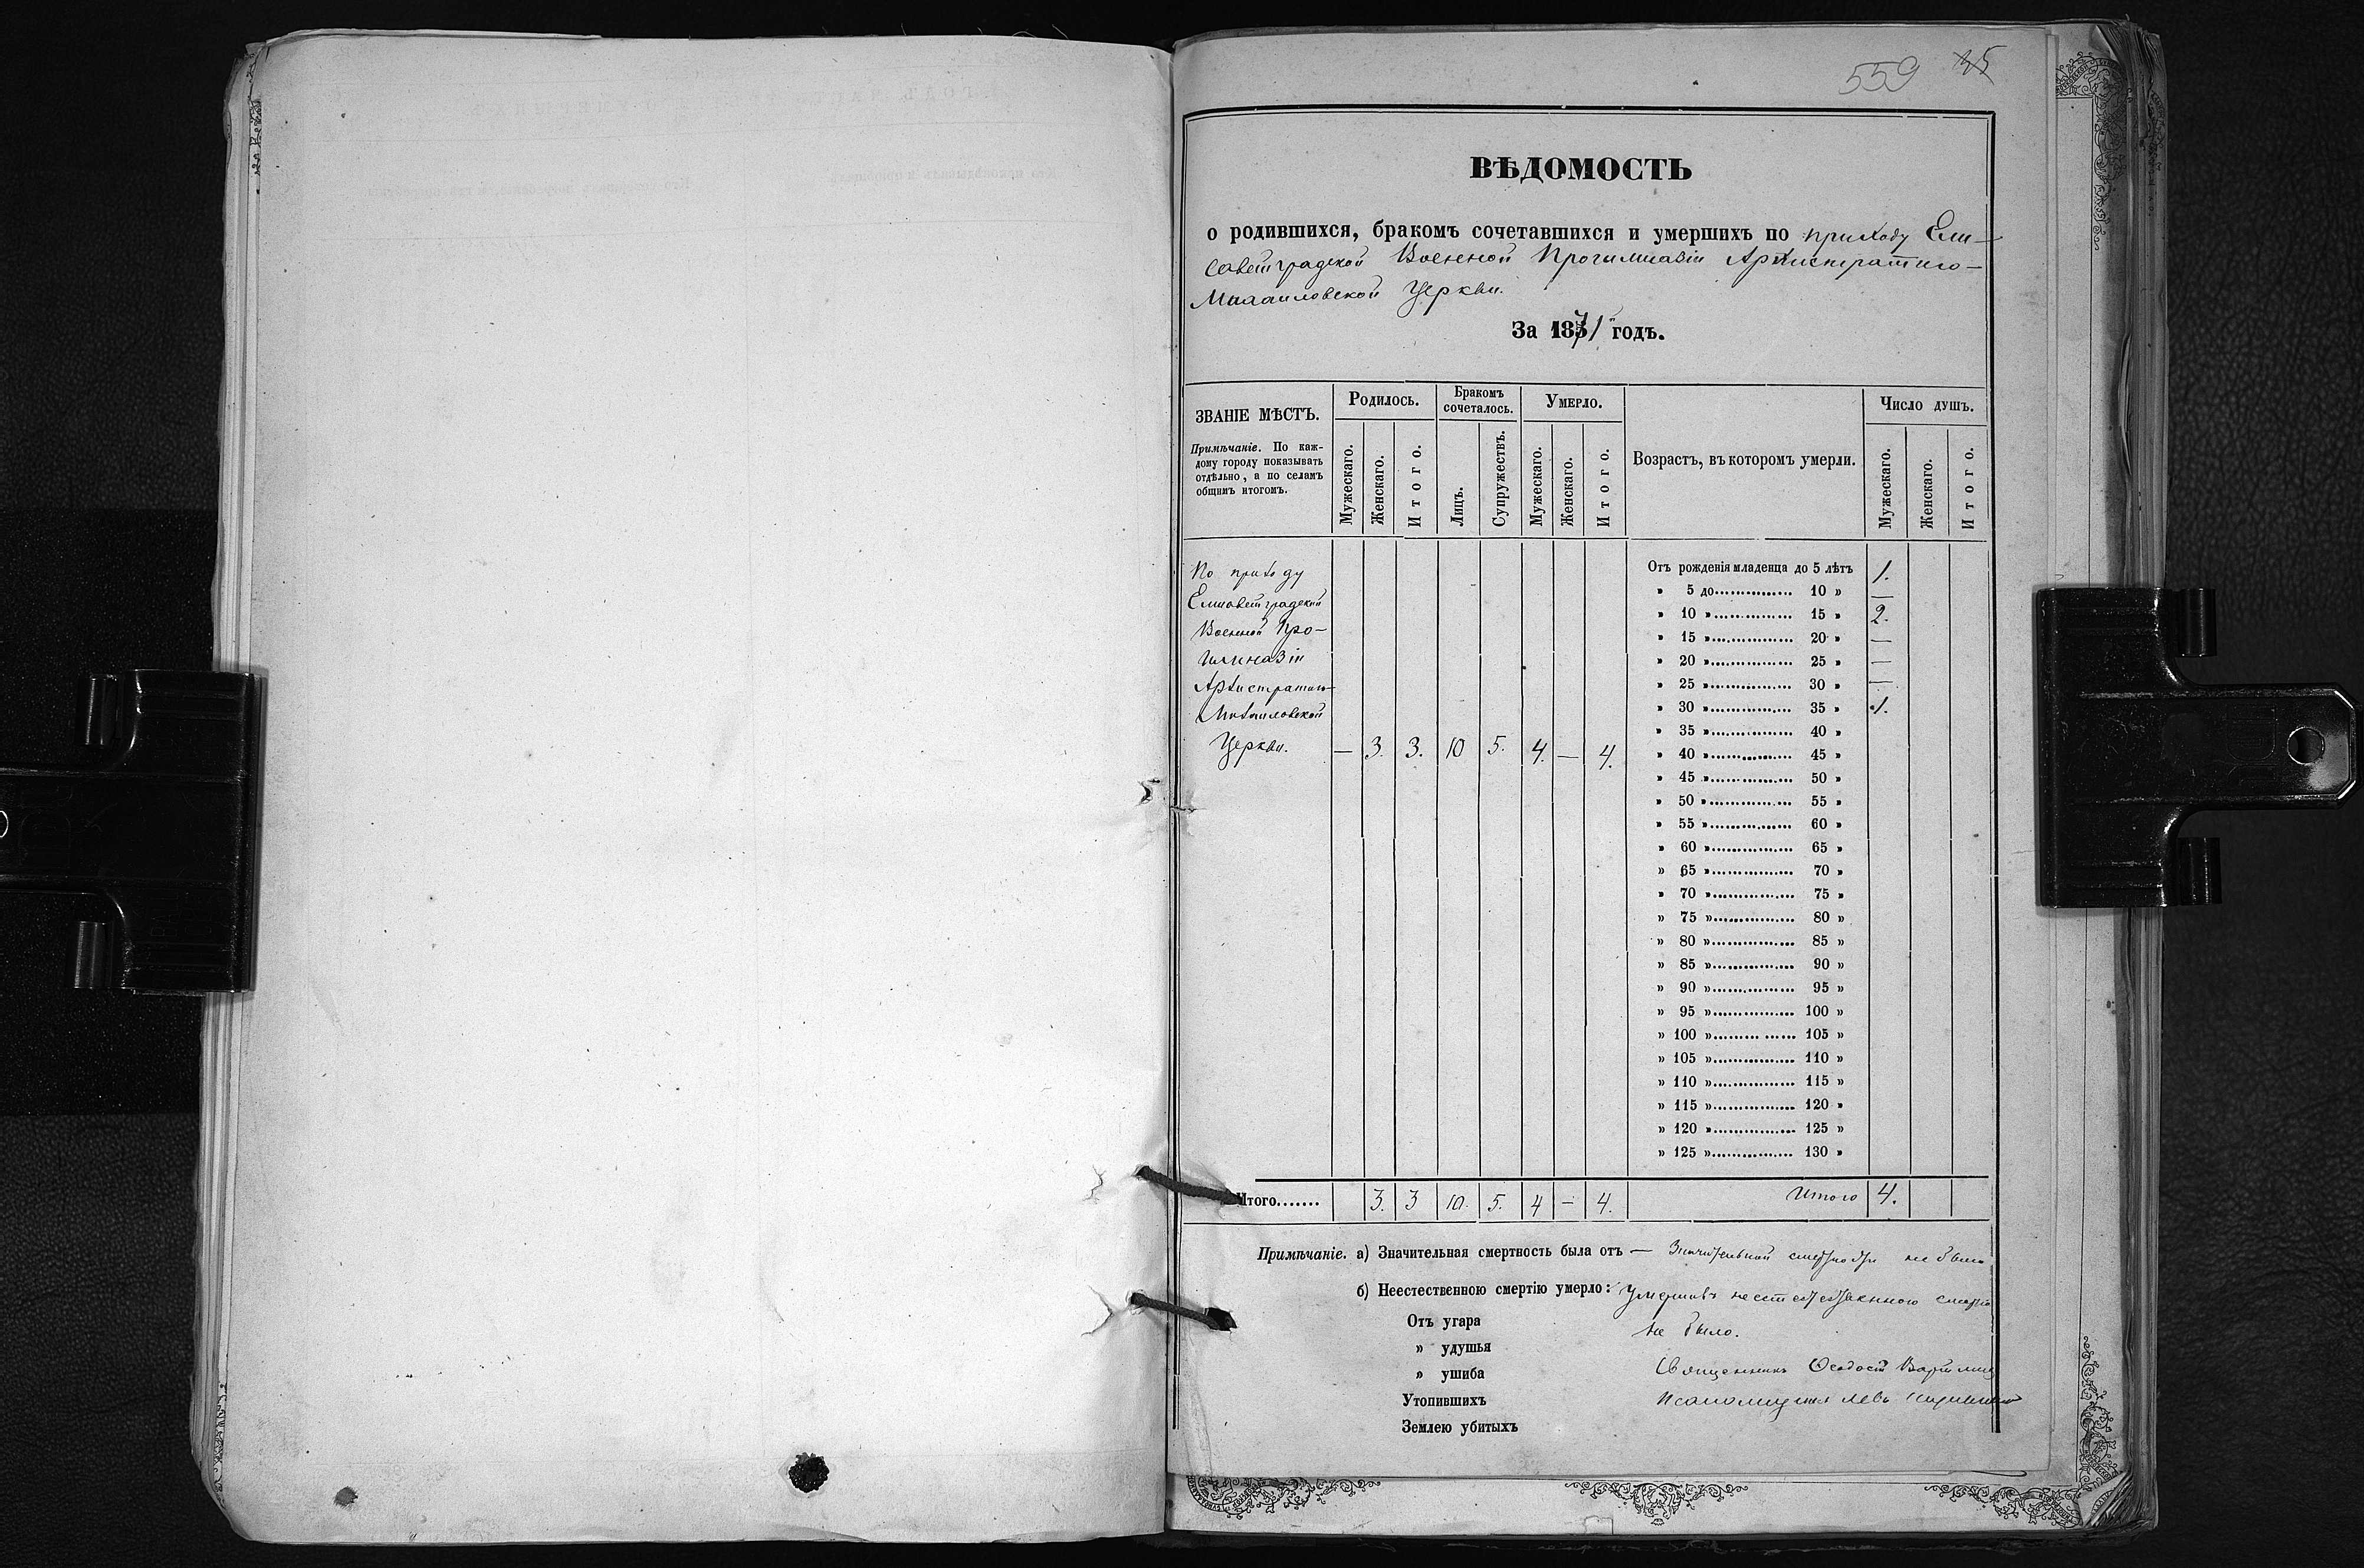 559 25
ВѢДОМОСТЬ
о родившихся, бракомъ сочетавшихся и умершихъ по приходу Ели-
саветградской Военной Прогимназіи Архистратиго-
Михаиловской Церкви.
За 1871 годъ.
ЗВАНІЕ МѢСТЪ.
Примѣчаніе. По каж-
дому городу показывать
отдѣльно, а по селамъ
общимъ итогомъ.
Родилось.
Бракомъ
сочеталось.
Умерло.
Возрастъ, въ которомъ умерли.
Число душъ.
Мужескаго. Женскаго. Итого. Лицъ. Супружествъ. Мужескаго. Женскаго. Итого. Мужескаго. Женскаго. Итого.
По приходу
Елисаветградской
Военной Про-
гимназіи
Архистратиго-
Михаиловской
Церкви. — 3. 3. 10 5. 4. — 4.
Отъ рожденія младенца до 5 лѣтъ 1.
» 5 до............... 10 » —
» 10 »............... 15 » 2.
» 15 »............... 20 » —
» 20 »............... 25 » —
» 25 »............... 30 » —
» 30 »............... 35 » 1.
» 35 »............... 40 »
» 40 »............... 45 »
» 45 »............... 50 »
» 50 »............... 55 »
» 55 »............... 60 »
» 60 »............... 65 »
» 65 »............... 70 »
» 70 »............... 75 »
» 75 »............... 80 »
» 80 »............... 85 »
» 85 »............... 90 »
» 90 »............... 95 »
» 95 »............... 100 »
» 100 »............... 105 »
» 105 »............... 110 »
» 110 »............... 115 »
» 115 »............... 120 »
» 120 »............... 125 »
» 125 »............... 130 »
Итого....... 3. 3 10. 5. 4 — 4. Итого 4.
Примѣчаніе. а) Значительная смертность была отъ — Значительной смертности не было
б) Неестественною смертію умерло: Умершихъ неестественною смертію
Отъ угара не было.
» удушья
» ушиба Священникъ Ѳеодосій
Утопившихъ Псаломщикъ Левъ
Землею убитыхъ